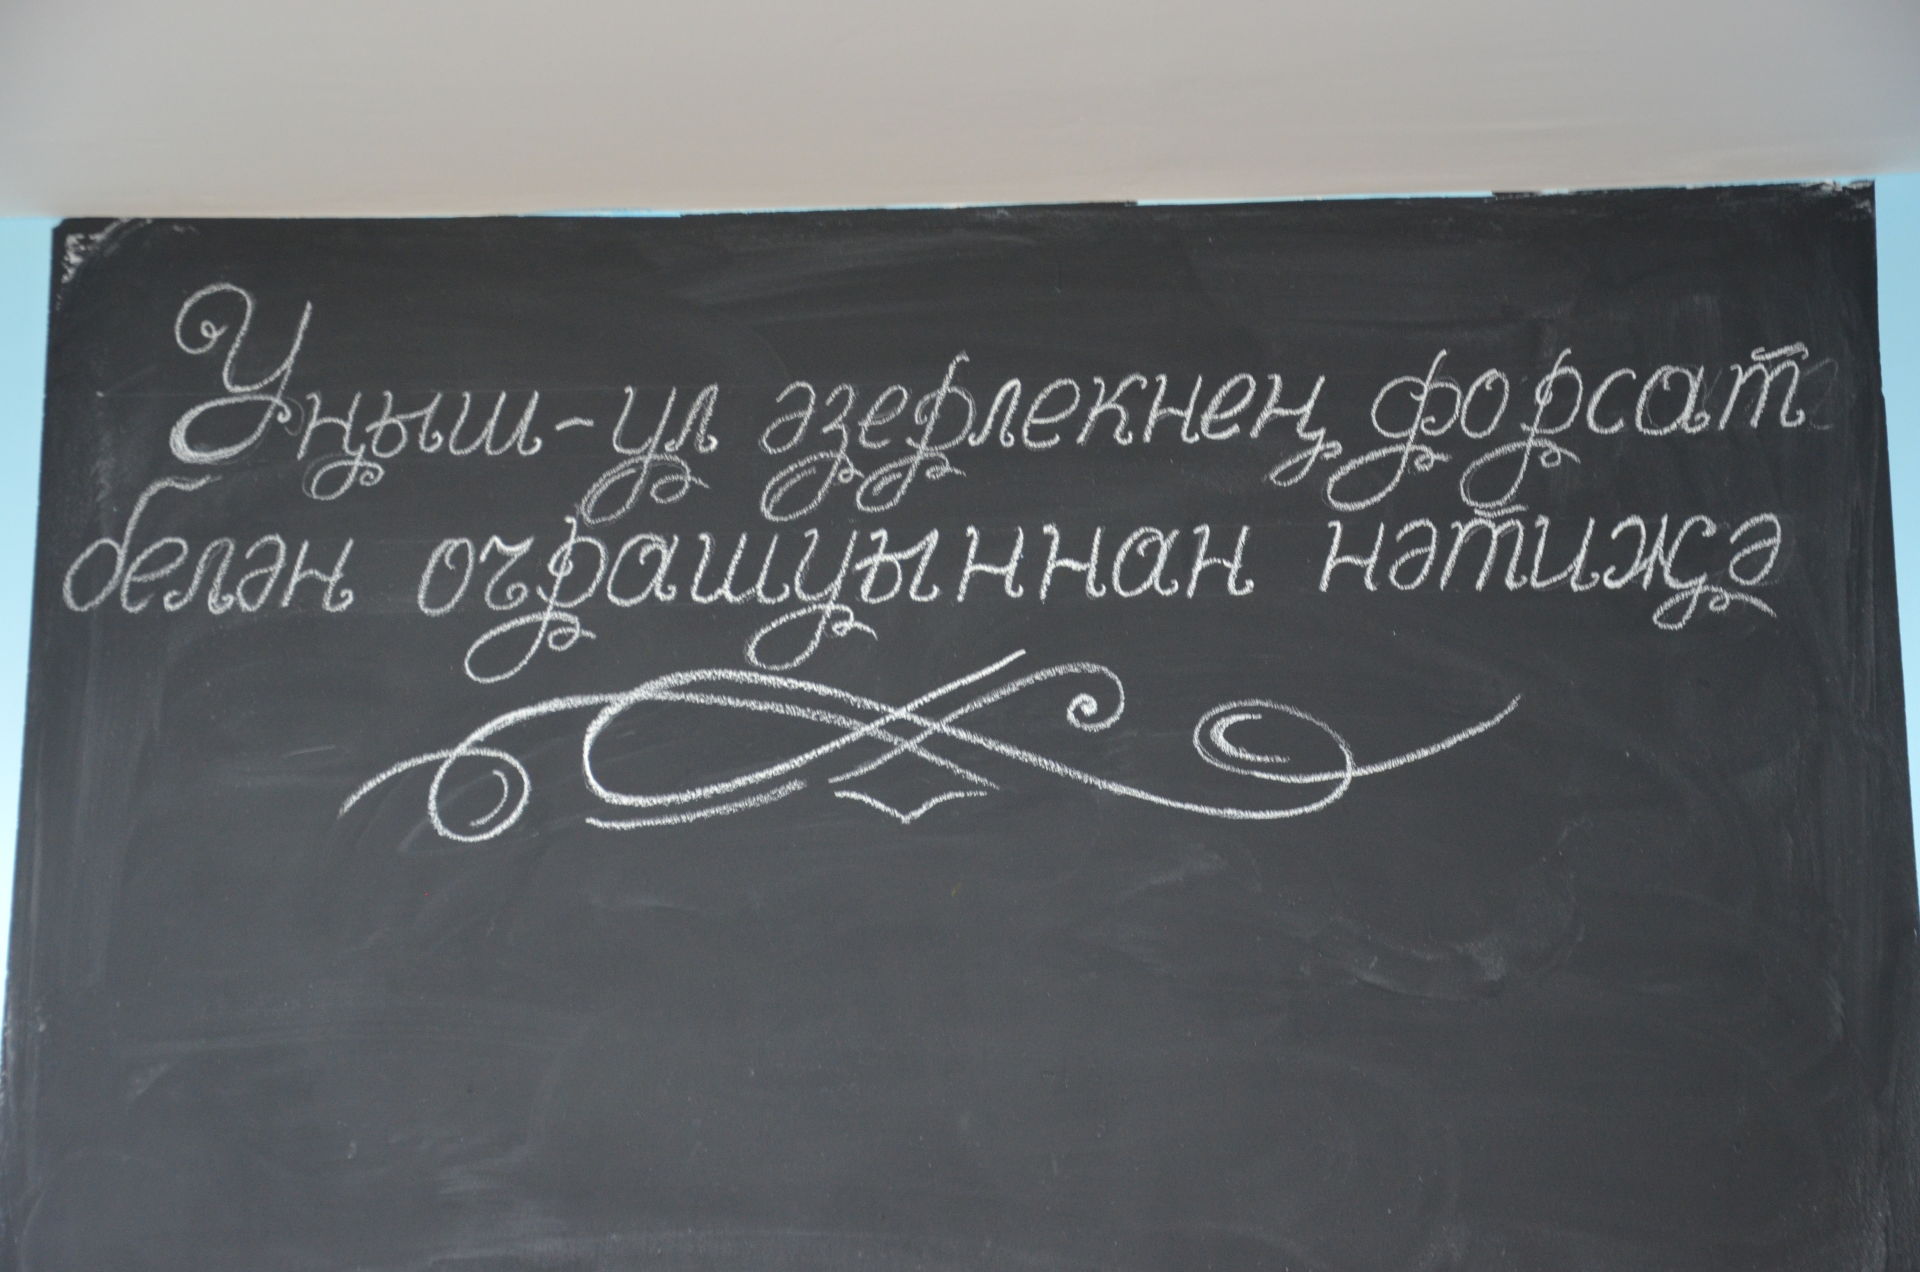 Уңыш-ул әзерлекнең форсат
белән очрашуыннан нәтиҗә